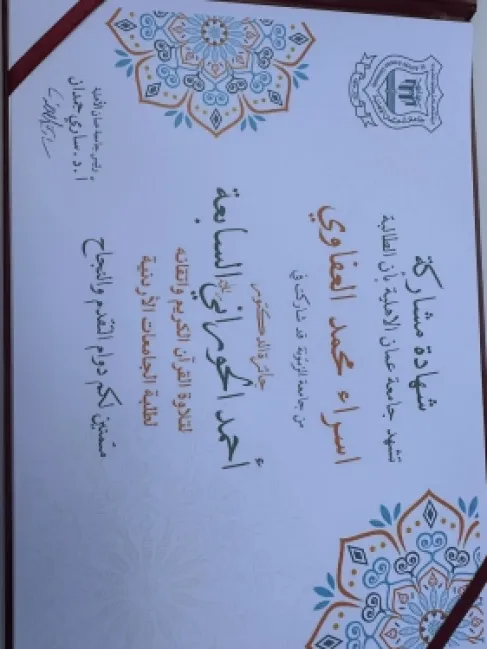 شهادة مشاركة
تشهد جامعة عمان الاهلية بأن الطالبة
اسراء محمد العفاوي
من جامعة الزيتونة قد شاركت في
جائزة الدكتور
أحمد الحوراني السابعة
لتلاوة القرآن الكريم واتقانه
لطلبة الجامعات الأردنية
متمنين لكم دوام التقدم والنجاح
رئيس جامعة عمان الأهلية
أ.د. ساري حمدان